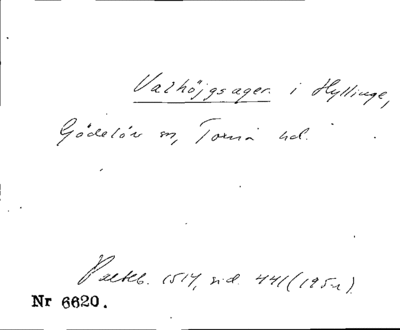 Valhöjgsager i Hyllinge,
Gödelöv sn, Torna hd.
Paltkb. 1514, sid. 441 (195v).
Nr 6620.